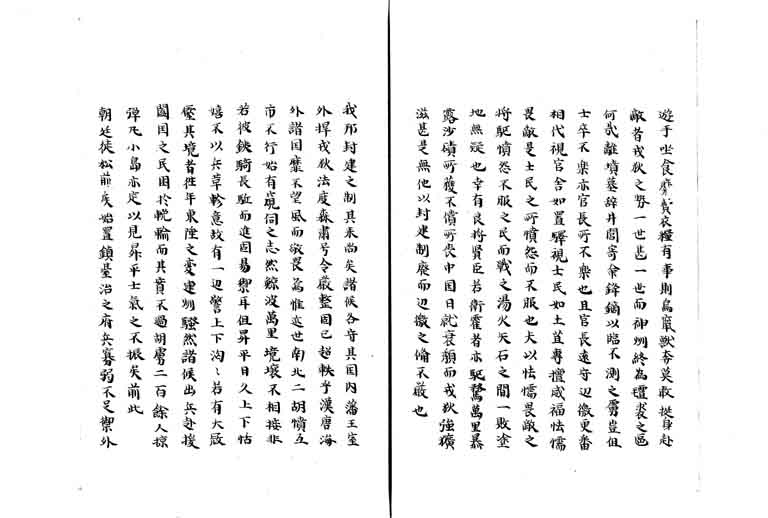 遊手坐食靡費衣糧有事則鳥竄獣奔莫敢挺身赴
敵者戎狄之勢一世甚一世而神州終為氊裘之區
何哉離墳墓辞井閭寄余鋒鏑以臨不測之䘐豈但
士卒不楽亦官長所不楽也且官長遠守辺徼更番
相代視官舎如置驛視士民如土苴專擅威福怯懦
畏敵是士民之所憤怨而不服也夫以怯懦畏敵之
将駆憤怨不服之民而戦之湯火矢石之間一敗塗
地無疑也幸有良将賢臣若衛霍者亦駆騖萬里暴
露沙磧所獲不償所喪中国日就衰頽而戎狄強獷
滋甚是無他以封建制廃而辺徼之備不厳也
我邦封建之制具未尚矣諸侯各守其国内藩王室
外捍戎狄法度森肅号令厳整固已超軼乎漢唐海
外諸国靡不望風而敬畏焉惟近世南北二胡憤互
市不行始有窺伺之志然鯨波萬里境壌不相接非
若彼鉄騎長駈而進固易禦耳但昇平日久上下恬
嬉不以兵革軫意故有一辺警上下洶〻若有大敵
壓其境者往年東陲之変建州騒然諸侯出兵赴援
闔国之民困於㡆輸而其實不過胡虜二百餘人掠
弾丸小島亦足以見昇平士気之不振矣前此
朝廷徙松前矦始置鎮臺治之府兵寡弱不足禦外